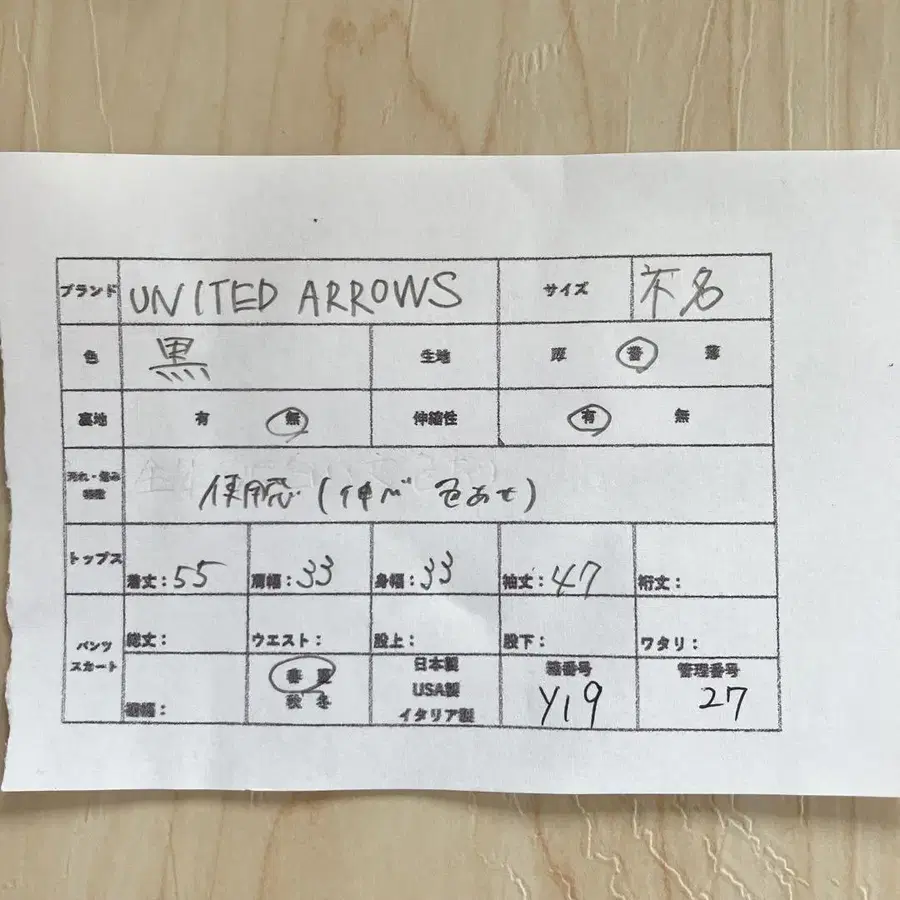 ブランド UNITED ARROWS サイズ 不名
色 黒 生地 厚 普 薄
裏地 有 無 伸縮性 有 無
汚れ・傷み
使用感(伸び 色あせ)
トップス 着丈:55 肩幅:33 身幅:33 袖丈:47 裄丈:
パンツ
スカート
総丈: ウエスト: 股上: 股下: ワタリ:
裾幅:
春 夏
秋 冬
日本製
USA製
イタリア製
箱番号
Y19
管理番号
27